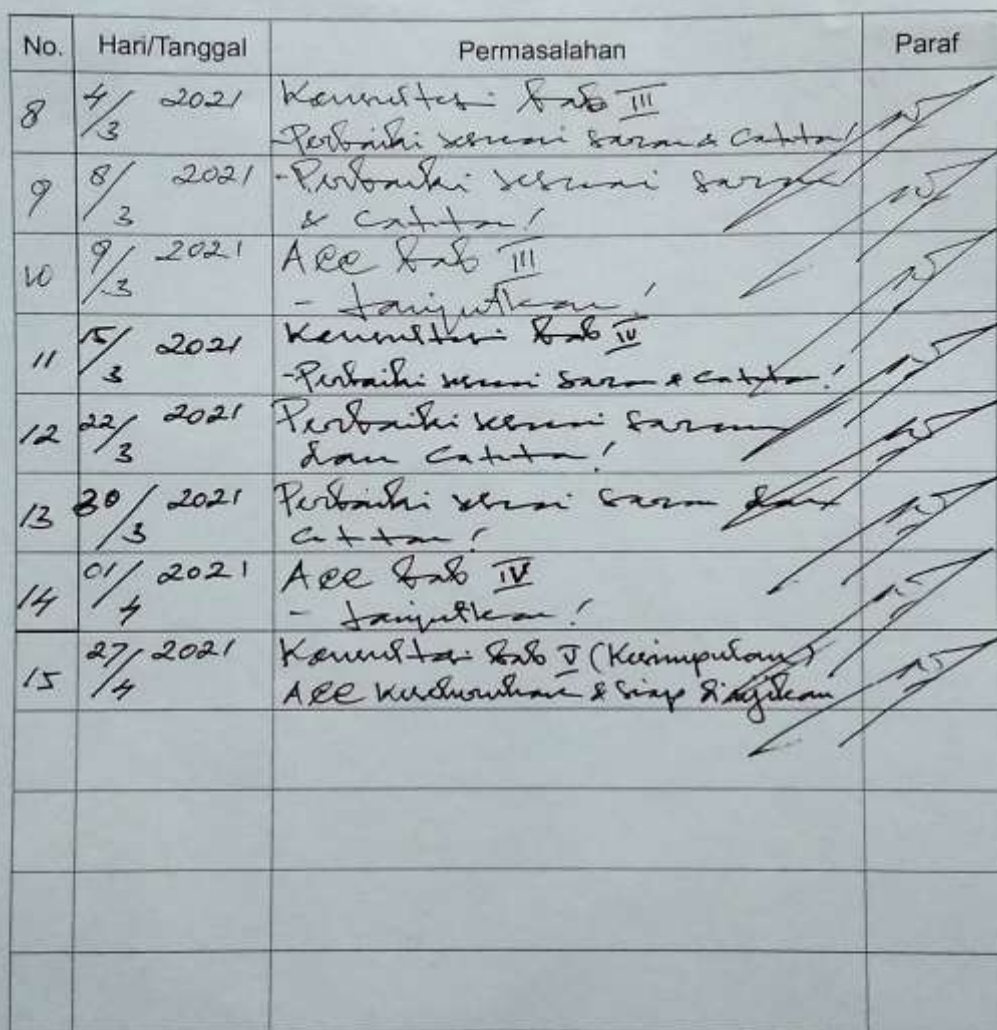 No. Hari/Tanggal Permasalahan Paraf
8 4/3 2021 Konsultasi Bab III
- Perbaiki sesuai saran & catatan!
9 8/3 2021 - Perbaiki sesuai saran
& catatan!
10 9/3 2021 Acc Bab III
- Lanjutkan!
11 15/3 2021 Konsultasi Bab IV
- Perbaiki sesuai saran & catatan!
12 22/3 2021 Perbaiki sesuai saran
dan catatan!
13 30/3 2021 Perbaiki sesuai saran dan
catatan!
14 01/4 2021 Acc Bab IV
- Lanjutkan!
15 27/4 2021 Konsultasi Bab V (Kesimpulan)
Acc keseluruhan & siap diujikan